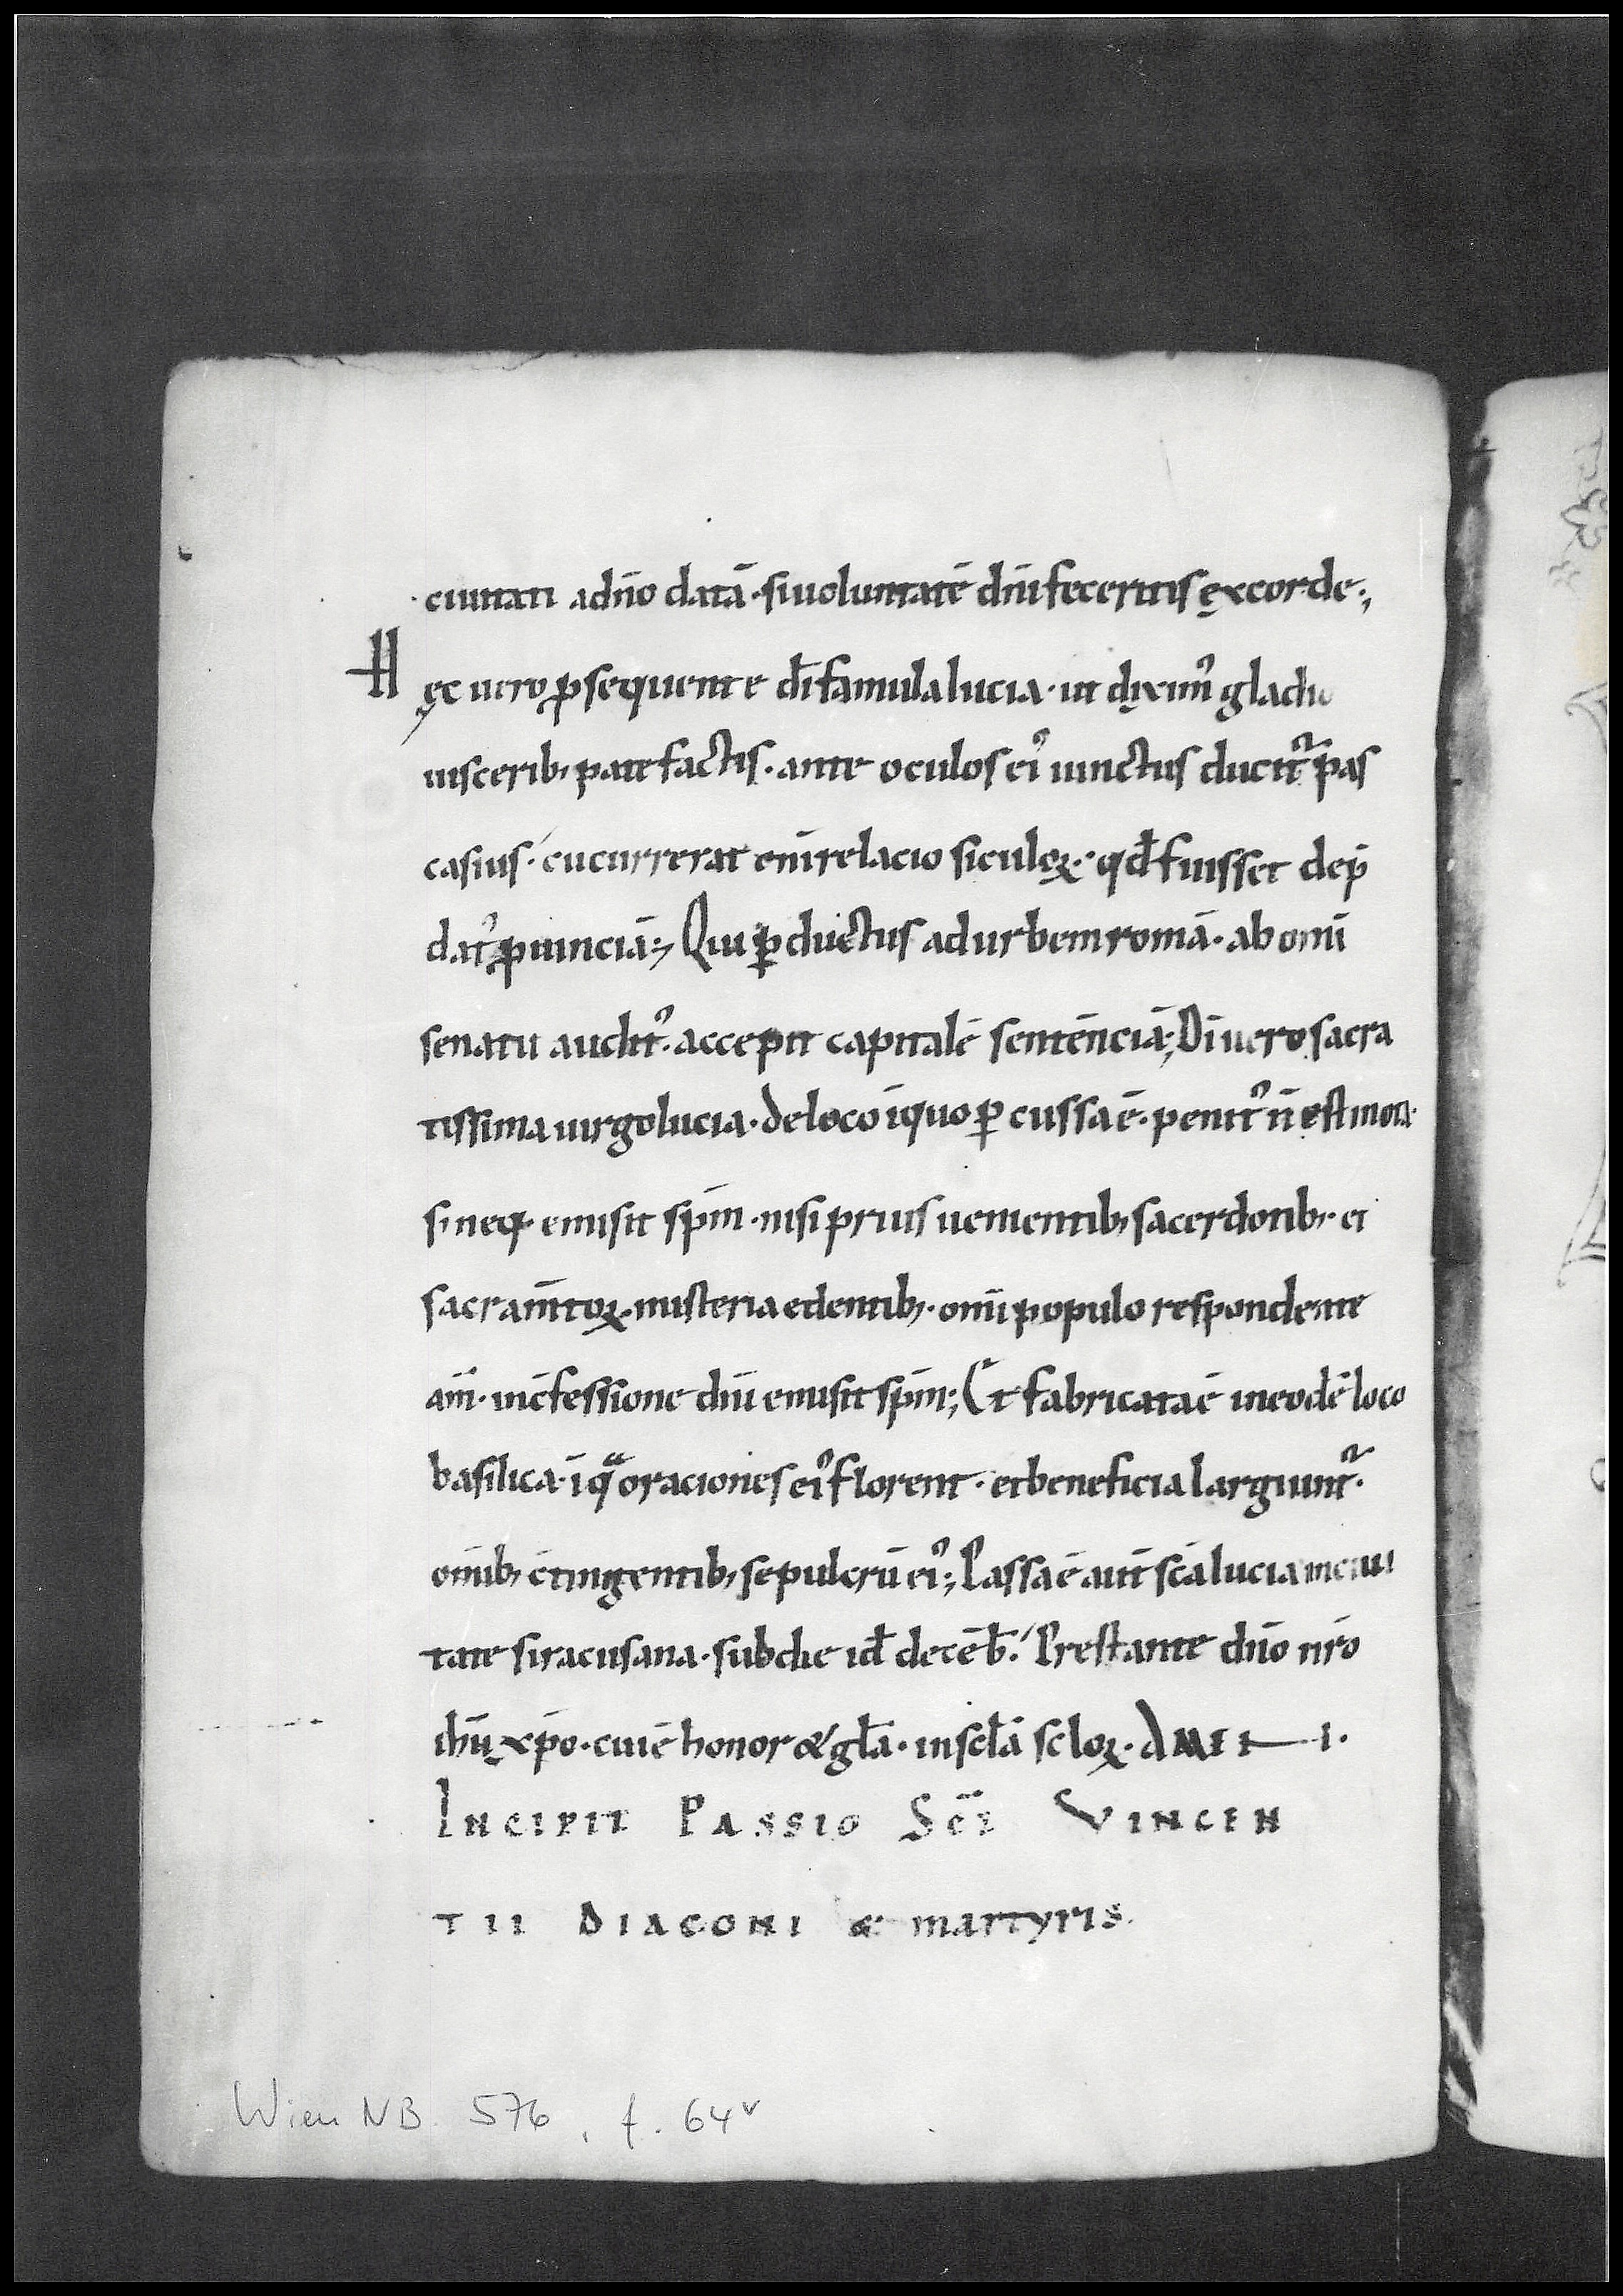 ciuitati adn̄o datā · siuoluntatē dn̄i feceritis ęxcorde ·,
Hęc uero ꝓsequente dī famula lucia · ut dixim᾿ gladio
uisceribꝰ patefactis · ante oculos ei᾿ uinctus ducit᷑ pas
casius · cucurrerat eni relacio siculoꝝ · qđ fuisset dep̄
dat᾿ ꝓuinciā ·, Qui ꝑductus ad urbem romā · ab omī
senatu audit᾿ · accepit capitalē sentēnciā ·, Di uero sacra
tissima uirgo lucia · de loco īquo ꝑcussa ē · penit᾿ n̄ est mota ·
s; neq · emisit sp̄m · nisi prius uenientibꝰ sacerdotibꝰ · et
sacram̄toꝝ · misteria edentibꝰ · omī populo respondente
am̄ · incfessione diu emisit sp̄m ·, Et fabricata ē in eodē loco
basilica · ī qͣ oraciones ei᾿ florent · et beneficia largiunt᷑ ·
om̄ibꝰ c̄tingentibꝰ sepulcrū ei᾿ ·, Passa ē aut̄ sc̄a lucia in ciui
tate siracusana · sub die iđ decēb̄ · Prestante dn̄o nr̄o
ihū xp̄o · cui ē honor & gl̄a · in scl̄a scl̄oꝝ · AMEN ·
INCIPIT PASSIO SC̄I VINCEN
TII DIACONI & martyris ·
Wien NB. 576, f. 64v